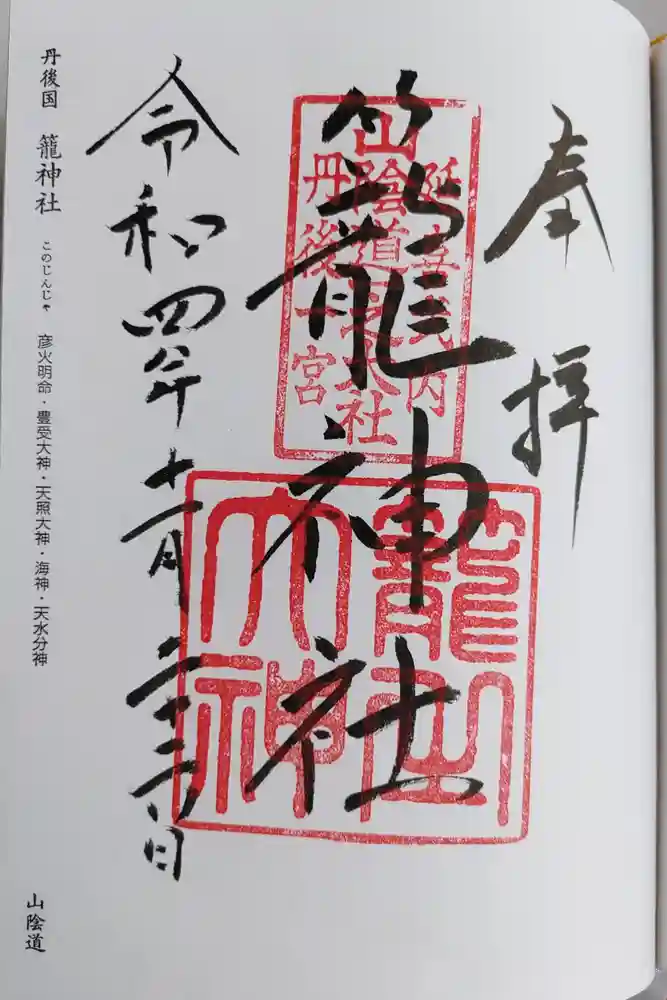 奉拝
延喜式内
山陰道一之大社
丹後一宮
籠神社
籠之
大神
令和四年十一月二十三日
丹後国 籠神社 このじんじゃ 彦火明命・豊受大神・天照大神・海神・天水分神
山陰道